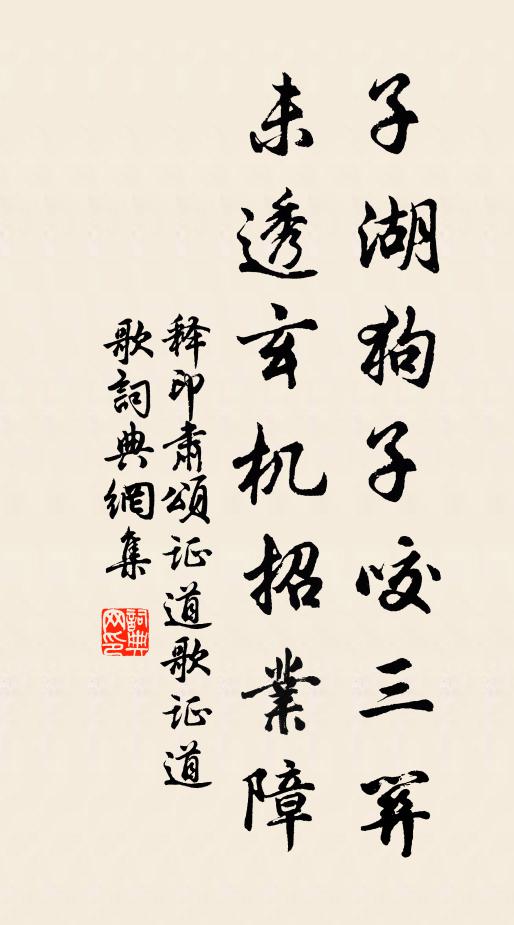 子湖狗子咬三羿
未透玄机招業障
释印肃頌证道歌证道
歌詞典網集
詞典
网印